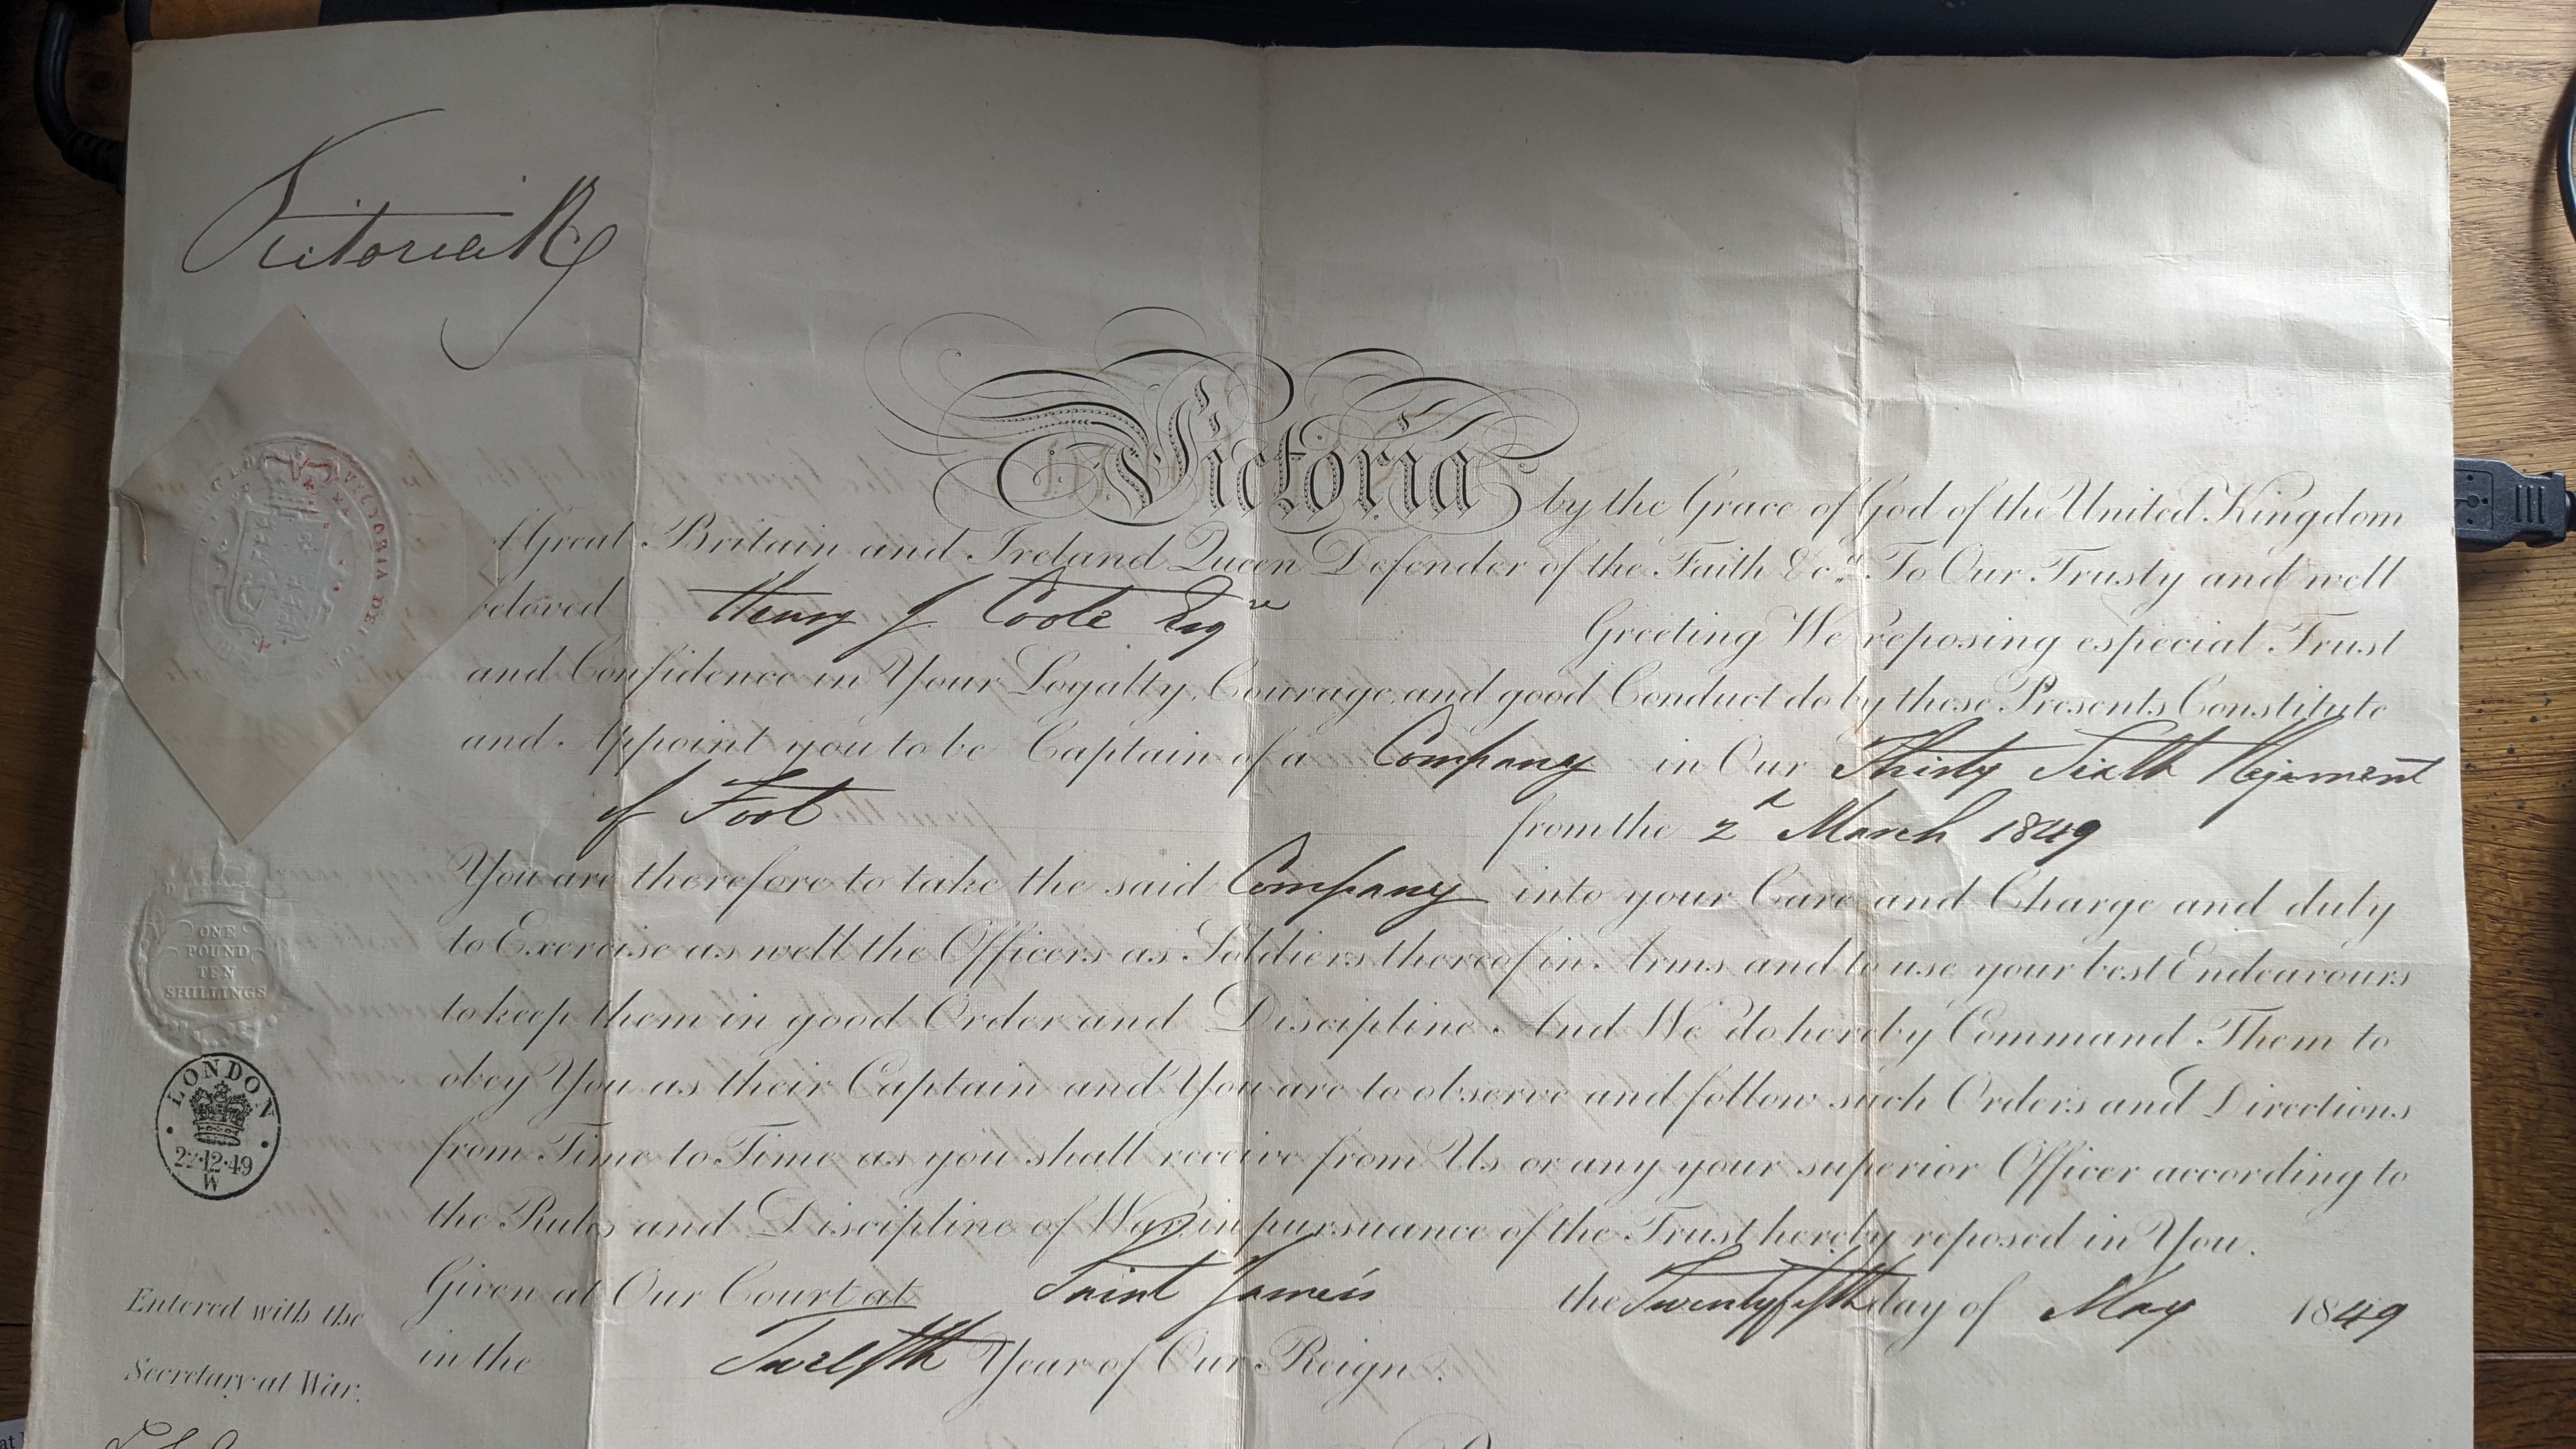 Victoria R
Victoria by the Grace of God of the United Kingdom
of Great Britain and Ireland Queen Defender of the Faith &c.ª To Our Trusty and well
beloved Henry J. Coote Esqre Greeting We reposing especial Trust
and Confidence in Your Loyalty, Courage, and good Conduct do by these Presents Constitute
and Appoint you to be Captain of a Company in Our Thirty Sixth Regiment
of Foot from the 2d March 1849
You are therefore to take the said Company into your Care and Charge and duly
to Exercise as well the Officers as Soldiers thereof in Arms and to use your best Endeavours
to keep them in good Order and Discipline. And We do hereby Command Them to
obey You as their Captain and You are to observe and follow such Orders and Directions
from Time to Time as you shall receive from Us or any your superior Officer according to
the Rules and Discipline of War, in pursuance of the Trust hereby reposed in You.
Given at Our Court at Saint James's the Twenty fifth day of May 1849
in the Twelfth Year of Our Reign.
VICTORIA DE
ONE
POUND
TEN
SHILLINGS
LONDON
12·49
W
Entered with the
Secretary at War.